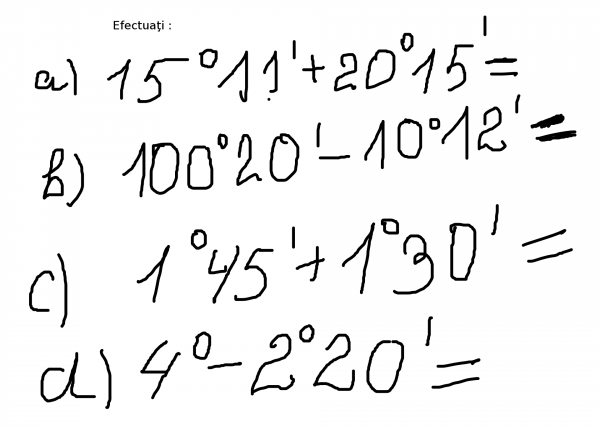 Efectuați :
a) 15°11'+20°15'=
b) 100°20'-10°12'=
c) 1°45'+1°30'=
d) 4°-2°20'=